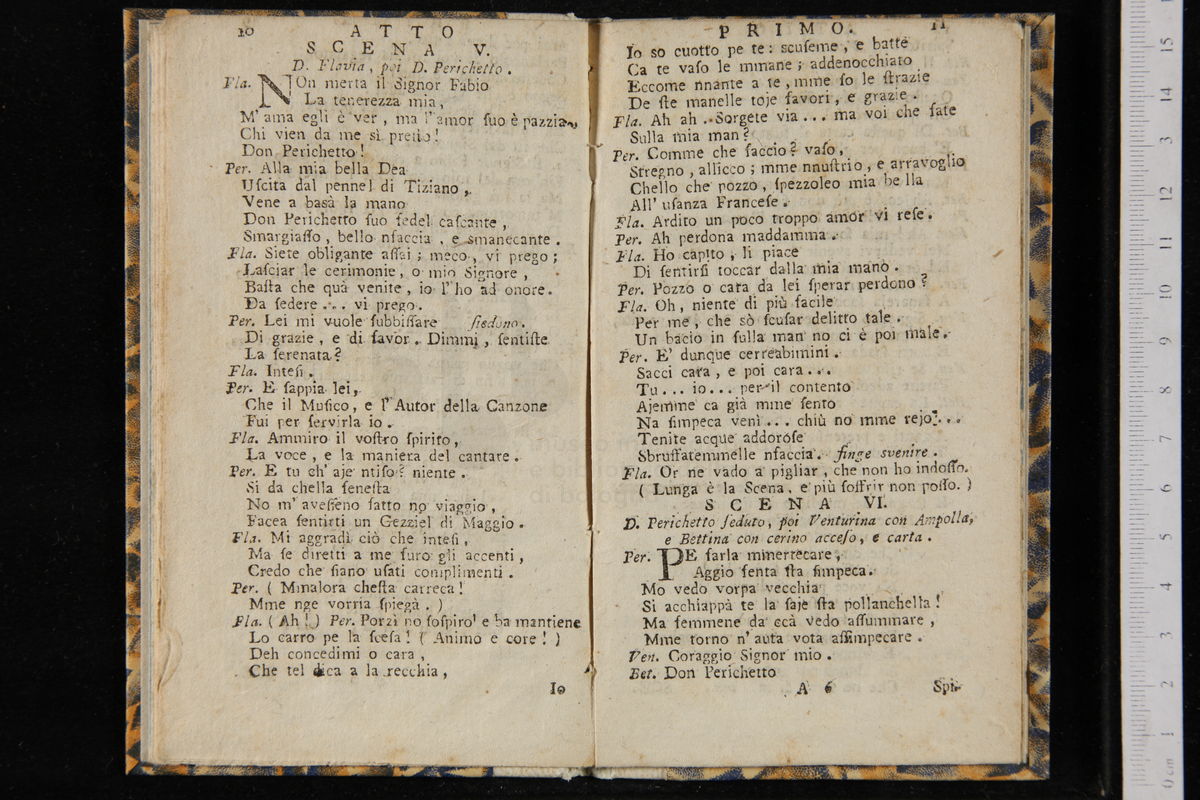 10
ATTO
SCENA V.
D. Flavia, poi D. Perichetto.
Fla. NOn merta il Signor Fabio
La tenerezza mia,
M'ama egli è ver, ma l'amor ſuo è pazzia,
Chi vien da me sì preſto!
Don Perichetto!
Per. Alla mia bella Dea
Uſcita dal pennel di Tiziano,
Vene a basà la mano
Don Perichetto ſuo fedel caſcante,
Smargiaſſo, bello nfaccia, e smanecante.
Fla. Siete obligante aſſai; meco, vi prego;
Laſciar le cerimonie, o mio Signore,
Baſta che quà venite, io l'ho ad onore.
Da ſedere.... vi prego.
Per. Lei mi vuole ſubbiſſare ſiedono.
Di grazie, e di favor. Dimmi, ſentiſte
La ſerenata?
Fla. Inteſi.
Per. E ſappia lei,
Che il Muſico, e l'Autor della Canzone
Fui per ſervirla io.
Fla. Ammiro il voſtro ſpirito,
La voce, e la maniera del cantare.
Per. E tu ch'aje ntiſo? niente.
Si da chella feneſta
No m'aveſſeno fatto no viaggio,
Facea ſentirti un Gezziel di Maggio.
Fla. Mi aggradì ciò che inteſi,
Ma ſe diretti a me furo gli accenti,
Credo che ſiano uſati complimenti.
Per. ( Mmalora cheſta carreca!
Mme nge vorria ſpiegà. )
Fla. ( Ah! ) Per. Porzì no ſoſpiro! e ba mantiene
Lo carro pe la ſceſa! ( Animo e core! )
Deh concedimi o cara,
Che tel dica a la recchia,
Io
PRIMO.
11
Io so cuotto pe te: scuſeme, e battè
Ca te vaſo le mmane; addenocchiato
Eccome nnante a te, mme fo le ſtrazie
De ſte manelle toje favori, e grazie.
Fla. Ah ah.. Sorgete via... ma voi che fate
Sulla mia man?
Per. Comme che faccio? vaſo,
Stregno, allicco; mme nnuſtrio, e arravoglio
Chello che pozzo, ſpezzoleo mia bella
All'uſanza Franceſe.
Fla. Ardito un poco troppo amor vi reſe.
Per. Ah perdona maddamma.
Fla. Ho capito, li piace
Di ſentirſi toccar dalla mia mano.
Per. Pozzo o cara da lei ſperar perdono?
Fla. Oh, niente di più facile
Per me, che sò ſcuſar delitto tale.
Un bacio in ſulla man no ci è poi male.
Per. E' dunque cerreabimini.
Sacci cara, e poi cara...
Tu... io... per il contento
Ajemme ca già mme ſento
Na ſimpeca venì... chiù no mme rejo...
Tenite acque addoroſe
Sbruffatemmelle nfaccia. finge svenire.
Fla. Or ne vado a pigliar, che non ho indoſſo.
( Lunga è la Scena, e più ſoffrir non poſſo. )
SCENA VI.
D. Perichetto ſeduto, poi Venturina con Ampolla,
e Bettina con cerino acceſo, e carta.
Per. PE farla mmerrecare,
Aggio fenta ſta ſimpeca.
Mo vedo vorpa vecchia
Si acchiappà te la ſaje ſta pollanchella!
Ma femmene da ccà vedo aſſummare,
Mme torno n'auta vota aſſimpecare.
Ven. Coraggio Signor mio.
Bet. Don Perichetto
A 6
Spi-